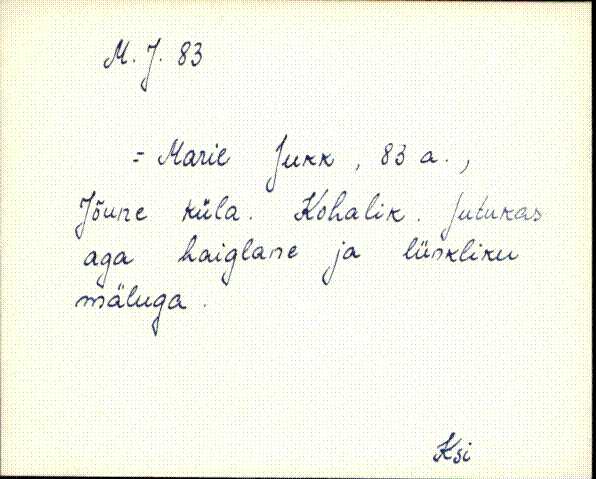 M. J. 83
= Marie Jukk, 83 a.,
Jõune küla. Kohalik. Jutukas
aga haiglane ja lünkliku
mäluga.
Ksi